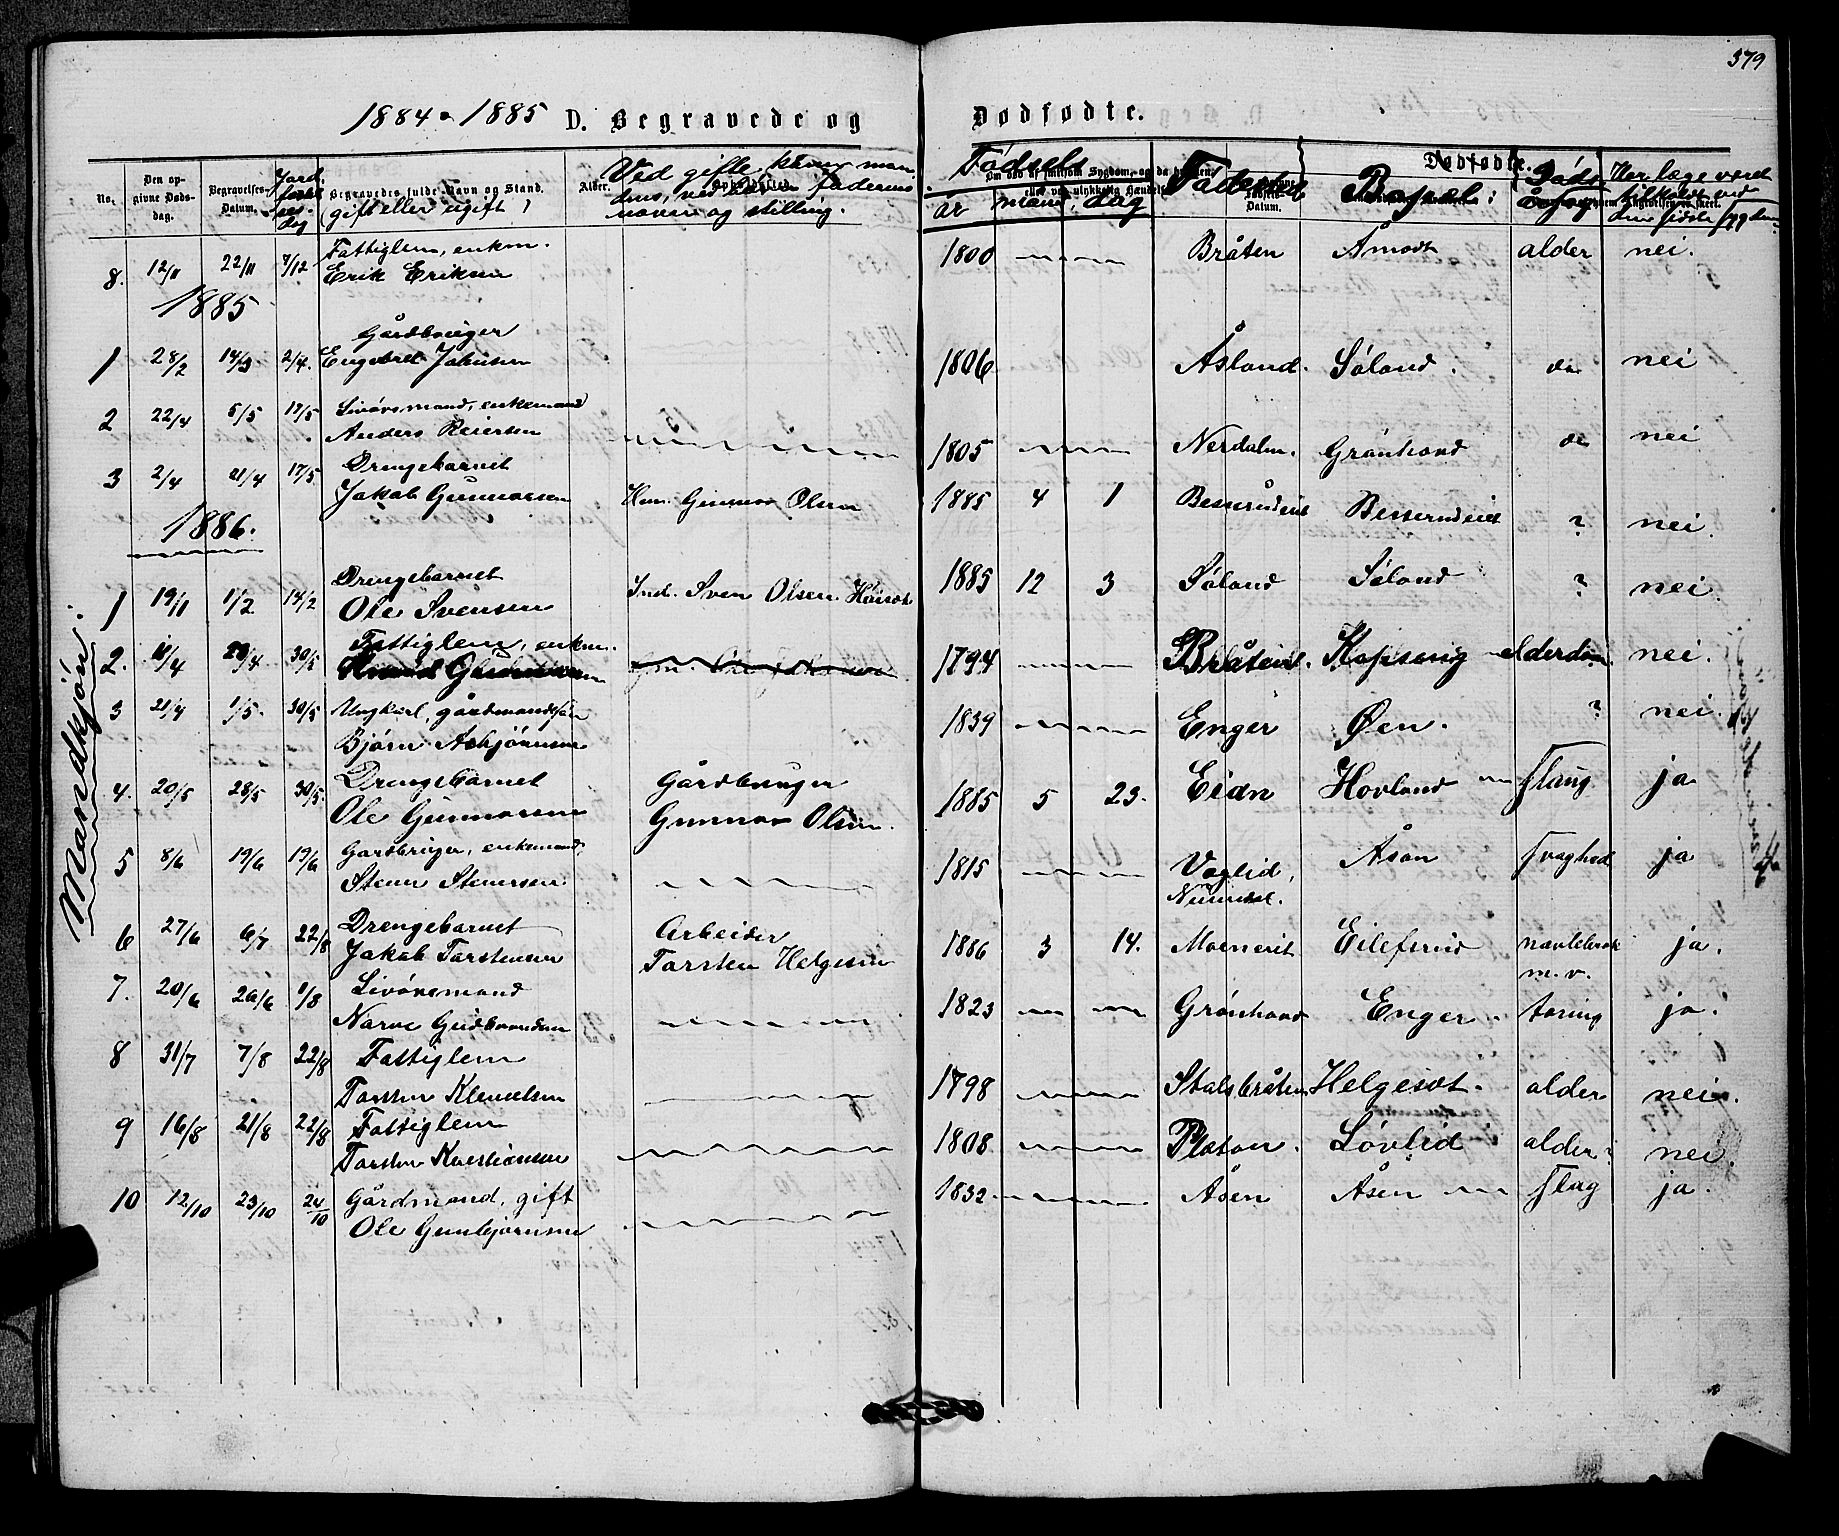 379
1884 o 1885 D. Begravede og Dødfødte.
No. Den opgivne Dødsdag. Begravelses-Datum. Jordfæstelsesdag Begravedes fulde Navn og Stand. gift eller ugift Alder. Ved gifte koner mandens, ved børn faderens navn og stilling. Fødsels år måned, dag Fødested Bopæl: Dødsårsag Har læge været tilkaldt ved den sidste sygdom?
Mandkjøn.
8. 12/11 22/11 7/12 Fattiglem, enkm. 1800 Bråten Åmodt alder nei.
Erik Eriksen
1885
Gårdbruger
1 28/2 14/3 2/4. Engebret Johnsen 1806 Åsland. Søland. do nei
2 22/4 5/5 17/5 Livøresmand, enkemand
Anders Reiersen 1805 Nerdalen. Grønhovd do nei
3 2/4 21/4 17/5 Drengebarnet
Jakob Gunnarsen Hm. Gunnar Olsen 1885 4 1 Besserudeiet Besserudeiet ? nei.
1886.
1 19/1 1/2 14/2 Drengebarnet
Ole Svensen Ind. Sven Olsen 1885 12 3 Søland Søland ? nei.
2. 30/5 Fattiglem, enkm. 1794 Bråten Kopseng alderdom nei.
3 21/4 1/5 30/5 Ungkarl, gårdmandssøn 1839 Enger Øen. ? nei.
Bjørn Asbjørnsen
4. 20/5 28/5 30/5. Drengebarnet Gårdbruger 1885 5 23. Eiden Hovland slag ja
Ole Gunnarsen Gunnar Olsen.
5 8/6 19/6 19/6 Gårdbruger, enkemand, 1815 Vaglid, Åsan svaghed ja
Stener Stenersen Numedal.
6 27/6 6/7 22/8 Drengebarnet Arbeider 1886 3 14. Moeneiet Eileferud navlebrok ja.
Jakob Torstensen Torsten Helgesen m. v.
7. 20/6 26/6 1/8 Livøresmand 1823 Grønhovd Enger. tæring ja.
Narve Gudbrandsen
8 31/7 7/8 22/8 Fattiglem 1798 Stalsbråten Helgeset. alder nei.
Torsten Klemetsen
9 16/8 21/8 22/8 Fattiglem 1808 Platan. Løvlid alder? nei.
Torsten Kristiansen
10 12/10 23/10 24/10 Gårdmand, gift 1832. Åsen Åsen slag ja.
Ole Gunbjørnsen